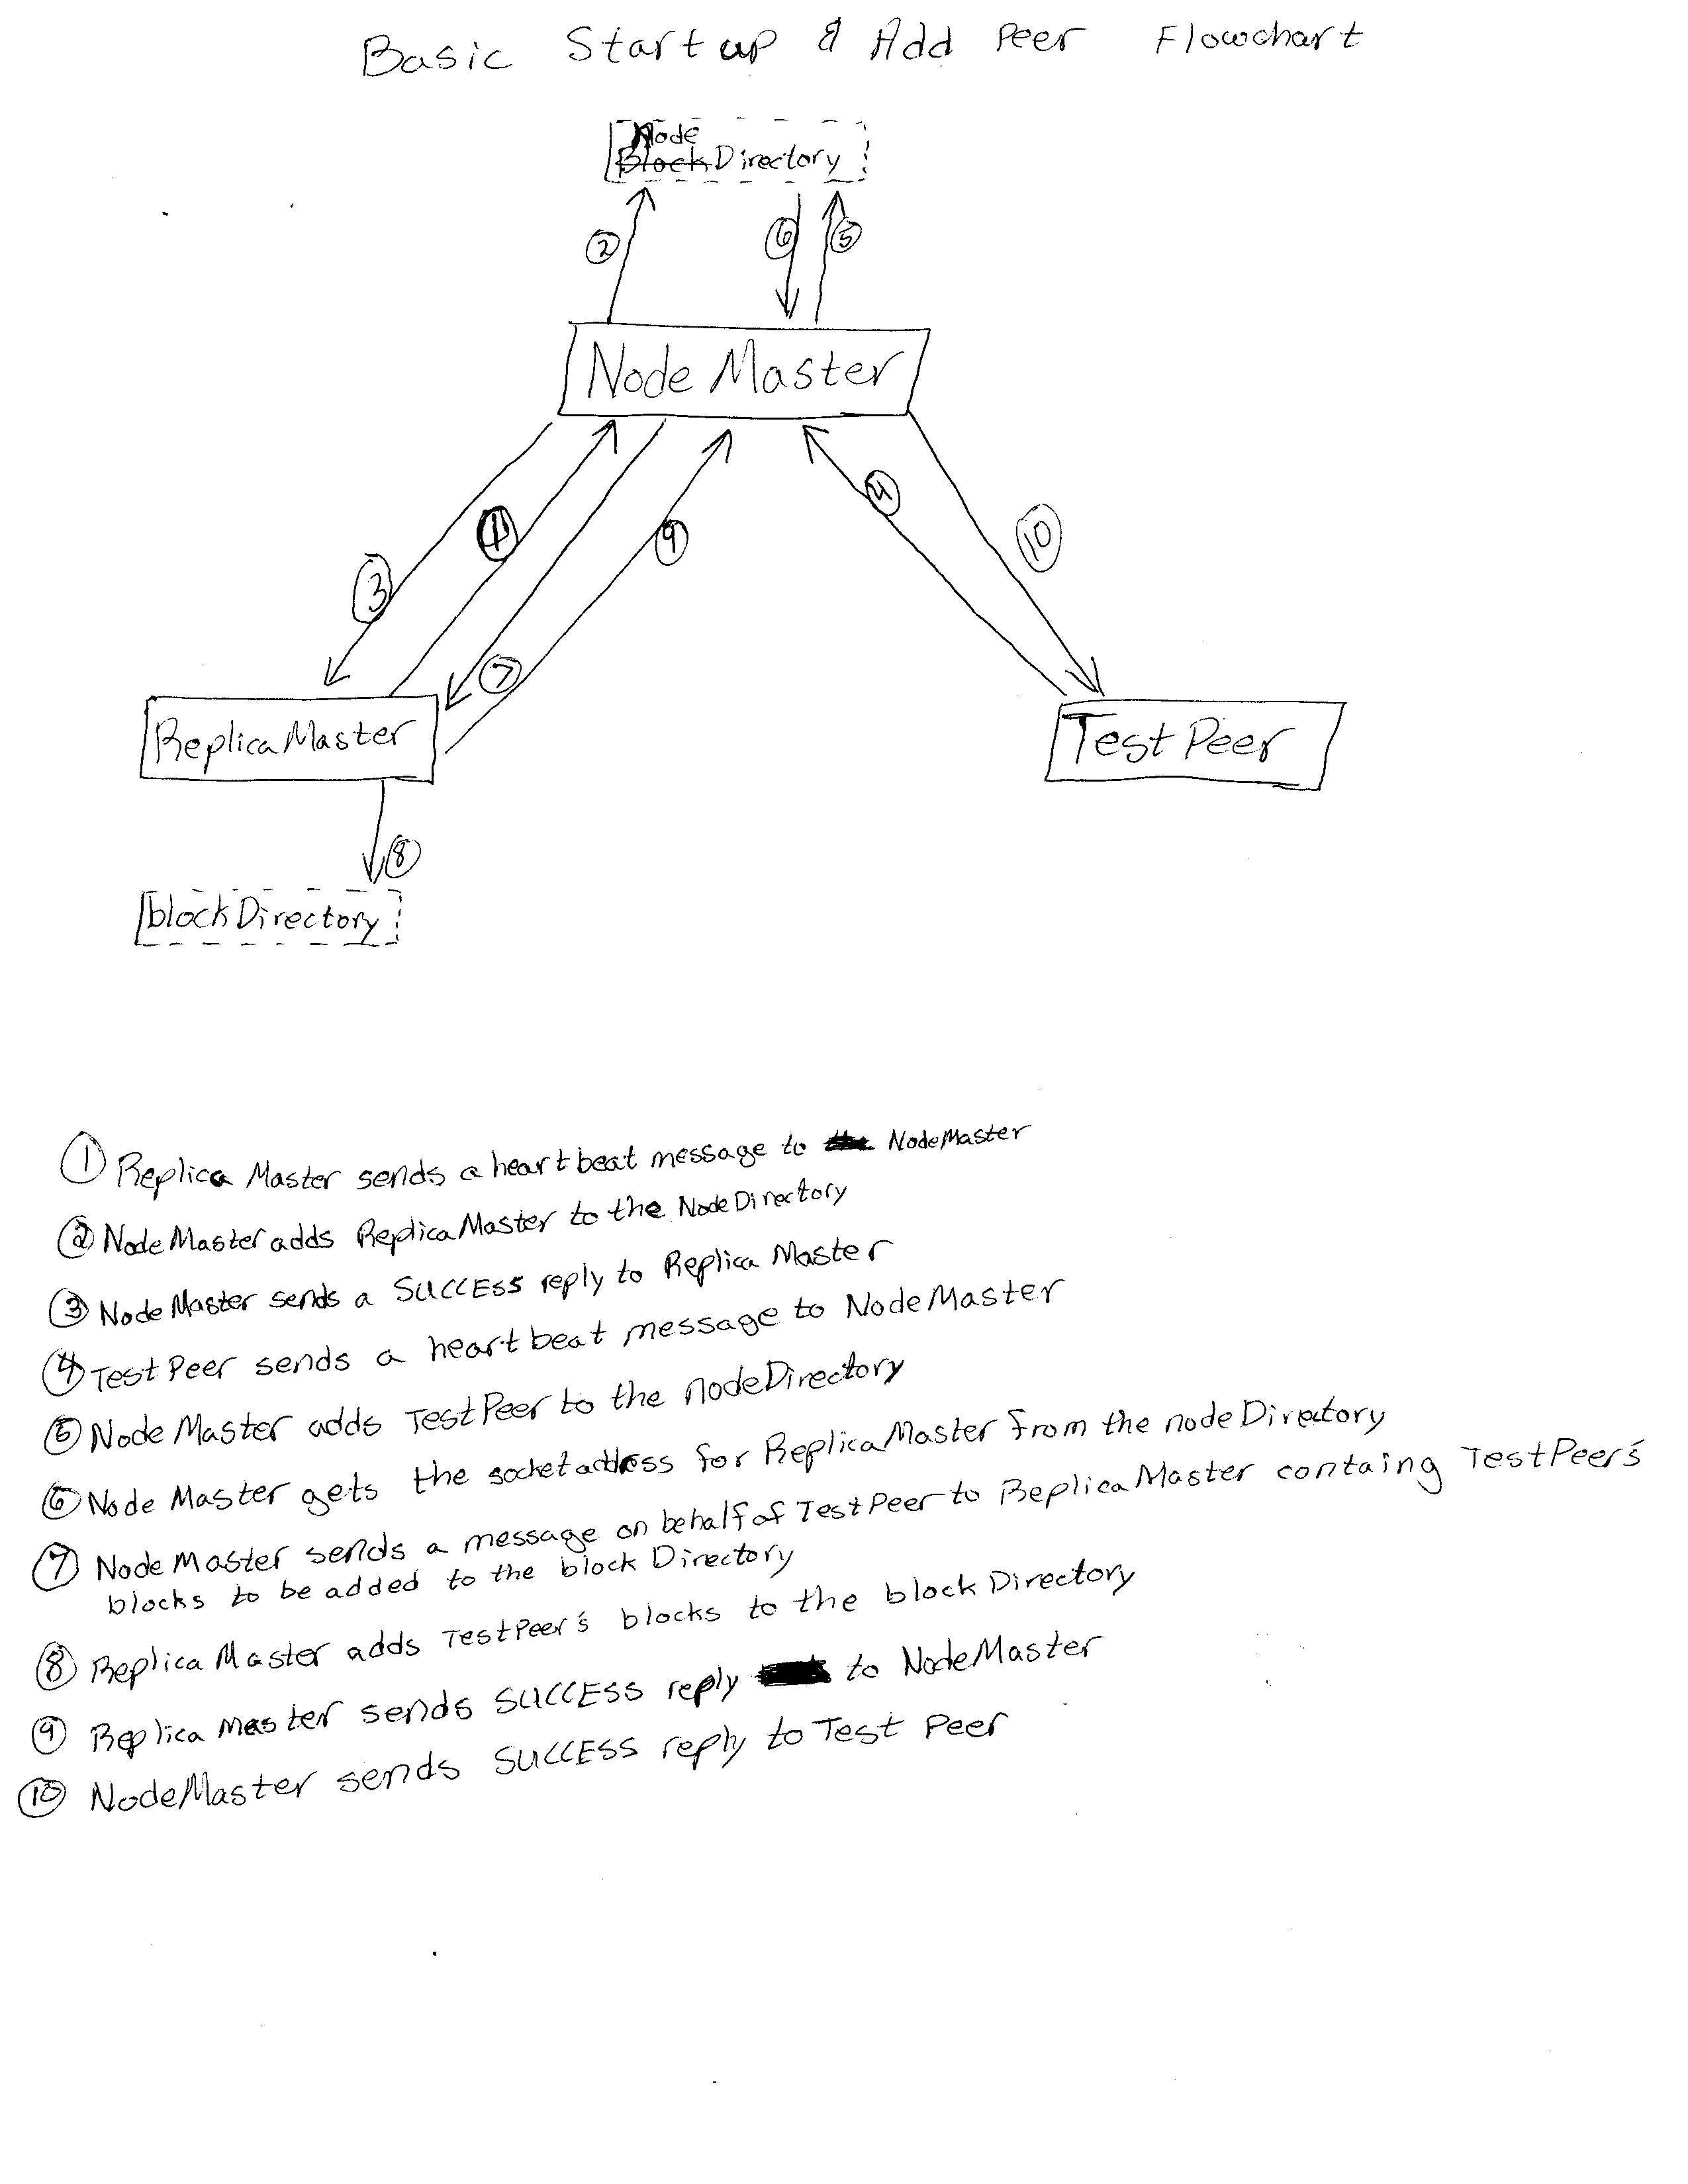 Basic Startup & Add Peer Flowchart
Node
Block Directory
2
6
5
Node Master
3
1
9
4
10
7
Replica Master
Test Peer
8
block Directory
1 Replica Master sends a heartbeat message to the NodeMaster
2 NodeMaster adds ReplicaMaster to the NodeDirectory
3 NodeMaster sends a SUCCESS reply to Replica Master
4 TestPeer sends a heartbeat message to NodeMaster
5 NodeMaster adds TestPeer to the nodeDirectory
6 NodeMaster gets the socketaddress for ReplicaMaster from the nodeDirectory
7 NodeMaster sends a message on behalf of TestPeer to ReplicaMaster containg TestPeer's
blocks to be added to the block Directory
8 ReplicaMaster adds TestPeer's blocks to the block Directory
9 Replica Master sends SUCCESS reply to NodeMaster
10 NodeMaster sends SUCCESS reply to Test Peer